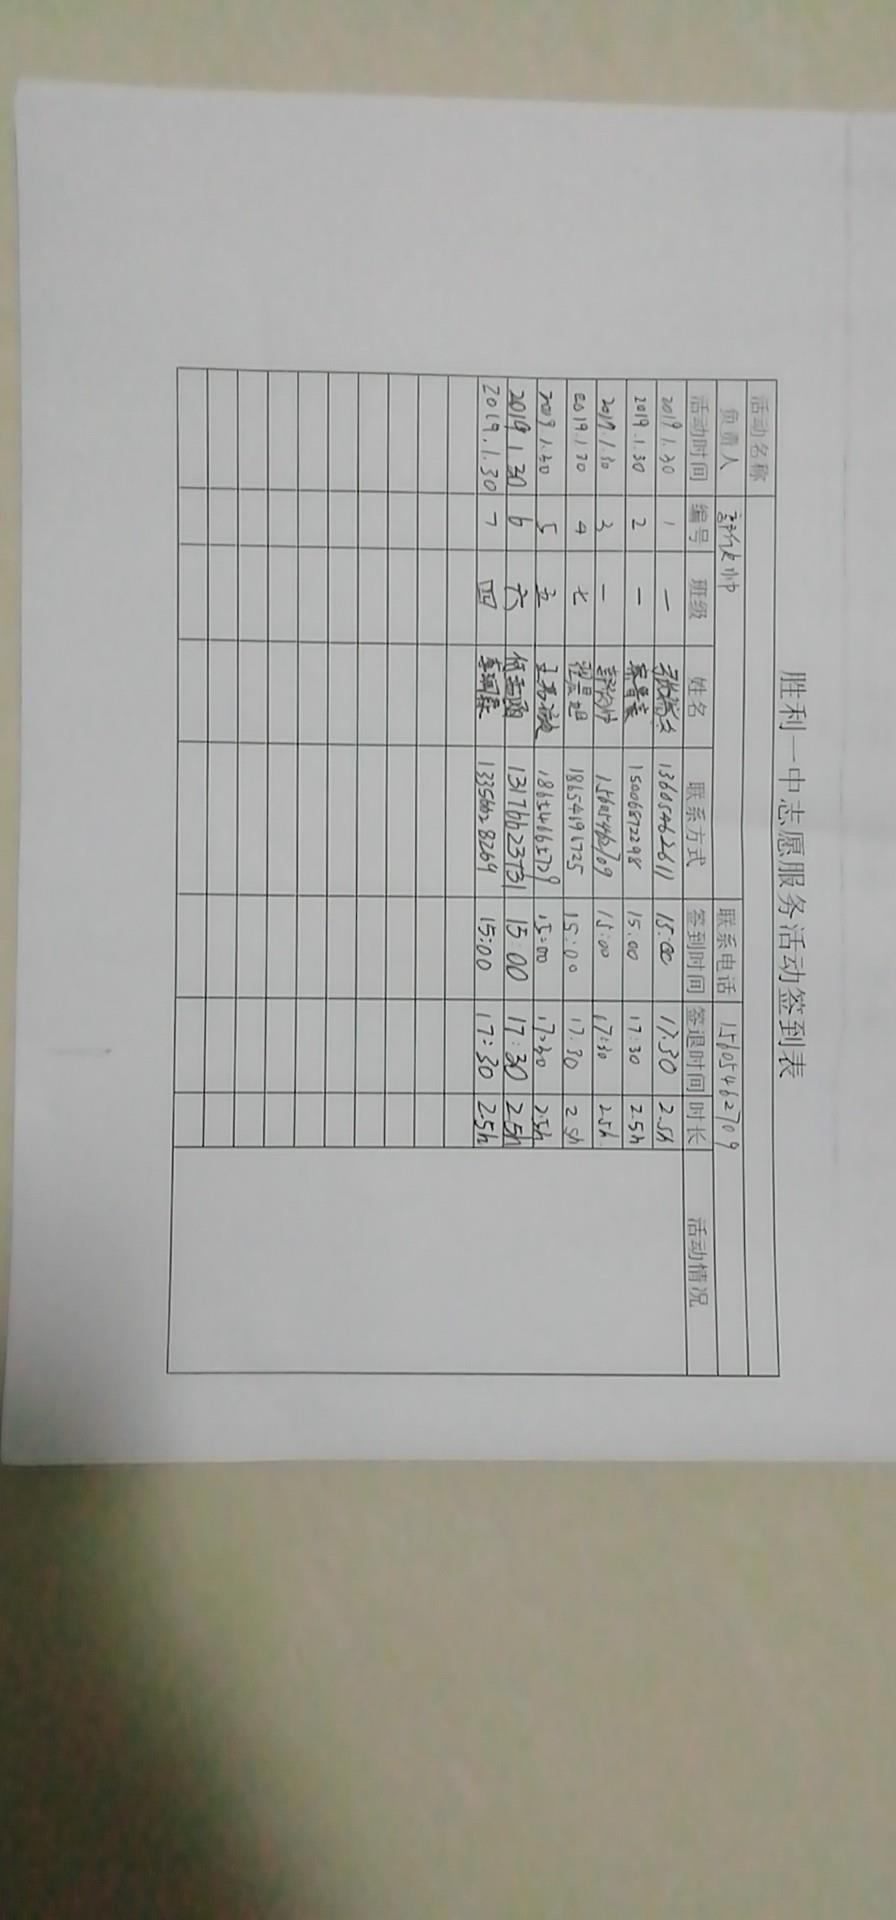 胜利一中志愿服务活动签到表
活动名称
负责人 联系电话 15605462709
活动时间 编号 班级 姓名 联系方式 签到时间 签退时间 时长 活动情况
2019.1.30 1 一 13605462611 15:00 17:30 2.5h
2019.1.30 2 一 15006872298 15:00 17:30 2.5h
2019.1.30 3 一 15605462709 15:00 17:30 2.5h
2019.1.30 4 七 18654696725 15:00 17:30 2.5h
2019.1.30 5 五 15:00 17:30 2.5h
2019.1.30 6 六 15:00 17:30 2.5h
2019.1.30 7 四 15:00 17:30 2.5h